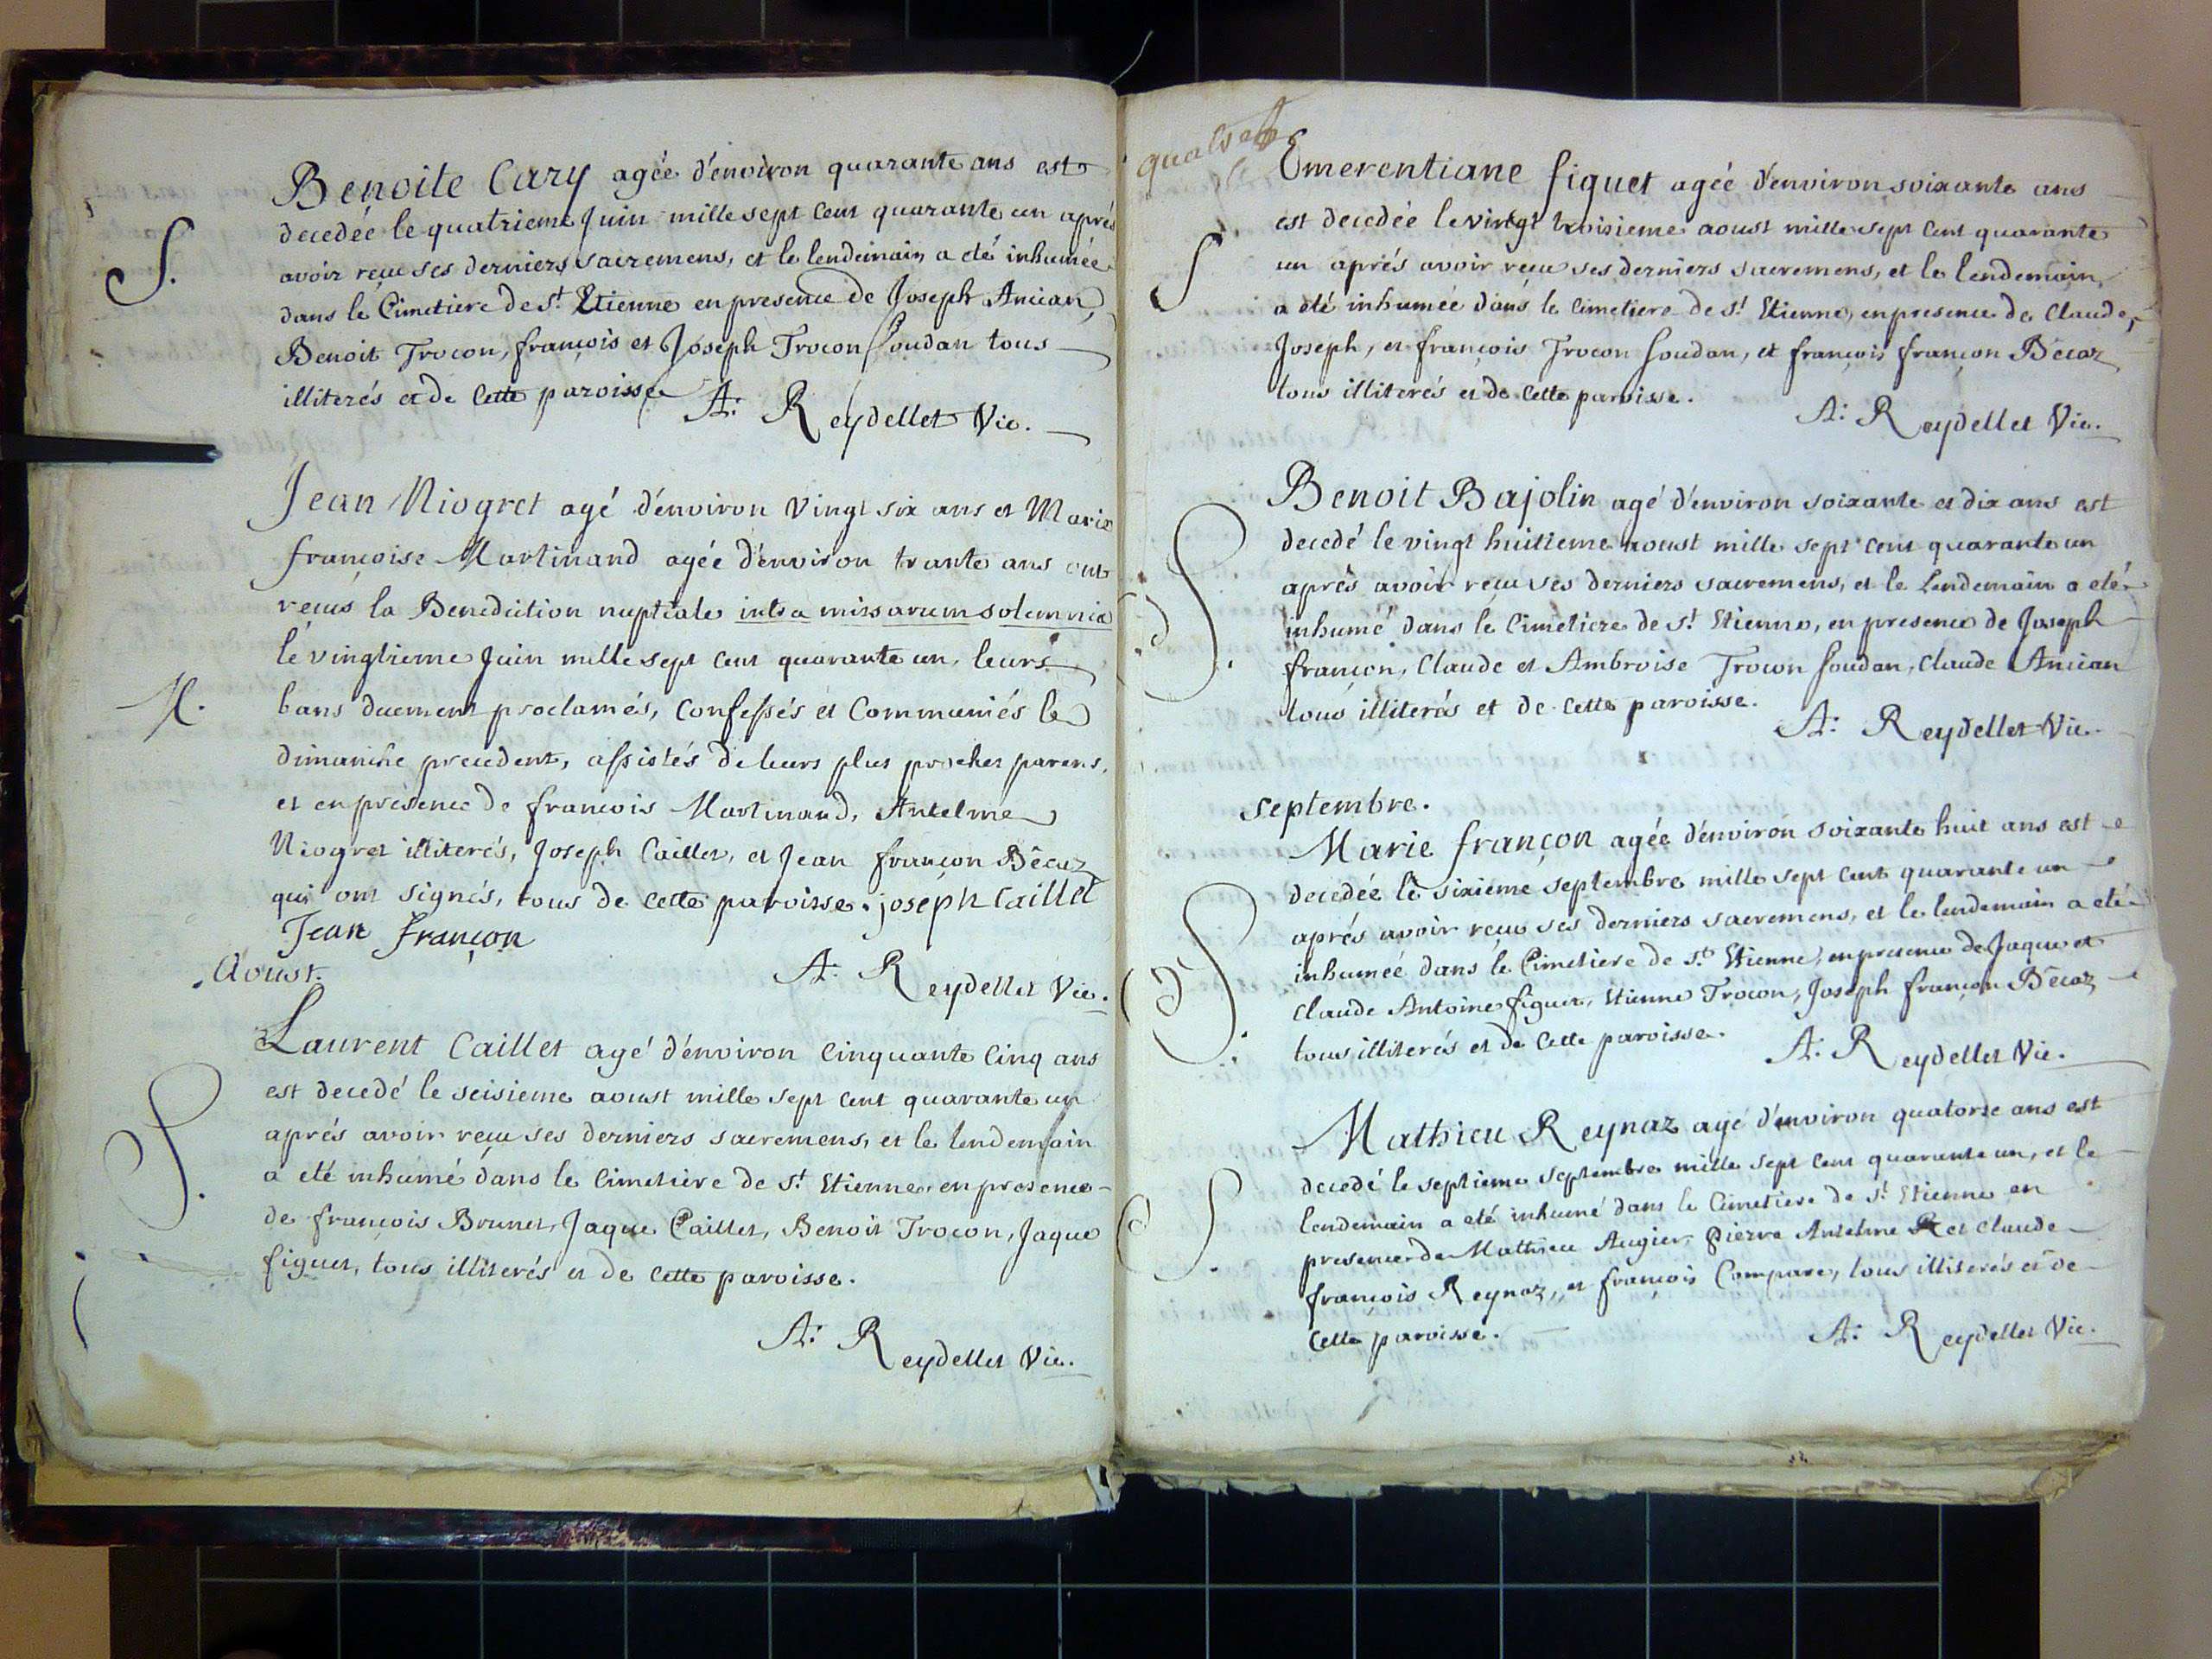 Benoite Cary agée d'environ quarante ans est
decedée le quatrieme Juin mille sept cent quarante un aprés
S.
avoir reçu ses derniers sacremens, et le lendemain a eté inhumée
dans le Cimetiere de St. Etienne en presence de Joseph Ancian,
Benoit Trocon, françois et Joseph Trocon Soudan tous
illiterés et de Cette paroisse
A: Reydellet Vic.
Jean Niogret agé d'environ vingt six ans et Marie
françoise Martinand agée d'environ trante ans ont
reçus la Benediction nuptiale intra missarum solemnia
le vingtieme Juin mille sept cent quarante un, leurs
M.
bans duement proclamés, Confessés et Communiés le
dimanche precedent, assistés de leurs plus proches parens,
et en présence de francois Martinand, Antelme
Niogret illiterés, Joseph Caillet, et Jean françon Bécaz
qui ont signés, tous de cette paroisse. joseph Caillet
Jean françon
A: Reydellet Vic.
Aoust.
Laurent Caillet agé d'environ Cinquante Cinq ans
est decedé le seisieme aoust mille sept cent quarante un
S.
aprés avoir reçu ses derniers sacremens, et le lendemain
a eté inhumé dans le Cimetiere de St. Etienne, en presence
de françois Brunet, Jaque Caillet, Benoit Trocon, Jaque
figuet, tous illiterés et de Cette paroisse.
A: Reydellet Vic.
Emerentiane figuet agée d'environ soixante ans
est decedée le vingt troisieme aoust mille sept cent quarante
S
un aprés avoir reçu ses derniers sacremens, et le lendemain
a été inhumée dans le Cimetiere de St. Etienne, en presence de Claude,
Joseph, et françois Trocon Soudan, et françois françon Bécaz
tous illiterés et de Cette paroisse.
A: Reydellet Vic.
Benoit Bajolin agé d'environ soixante et dix ans est
decedé le vingt huitieme aoust mille sept cent quarante un
S.
aprés avoir reçu ses derniers sacremens, et le Lendemain a eté
inhumé dans le Cimetiere de St. Etienne, en presence de Joseph
françon, Claude et Ambroise Trocon Soudan, Claude Ancian
tous illiterés et de Cette paroisse.
A: Reydellet Vic.
septembre.
Marie françon agée d'environ soixante huit ans est
decedée le sixieme septembre mille sept cent quarante un
S.
aprés avoir reçu ses derniers sacremens, et le lendemain a eté
inhumée dans le Cimetiere de St. Etienne, en presence de Jaque et
Claude Antoine figuet, Etienne Trocon, Joseph françon Bécaz
tous illiterés et de Cette paroisse.
A: Reydellet Vic.
Mathieu Reynaz agé d'environ quatorse ans est
decedé le septieme septembre mille sept cent quarante un, et le
S.
lendemain a eté inhumé dans le Cimetiere de St. Etienne en
presence de Mathieu Augier, Pierre Antelme et Claude
françois Reynaz, et françois Compare, tous illiterés et de
Cette paroisse.
A: Reydellet Vic.